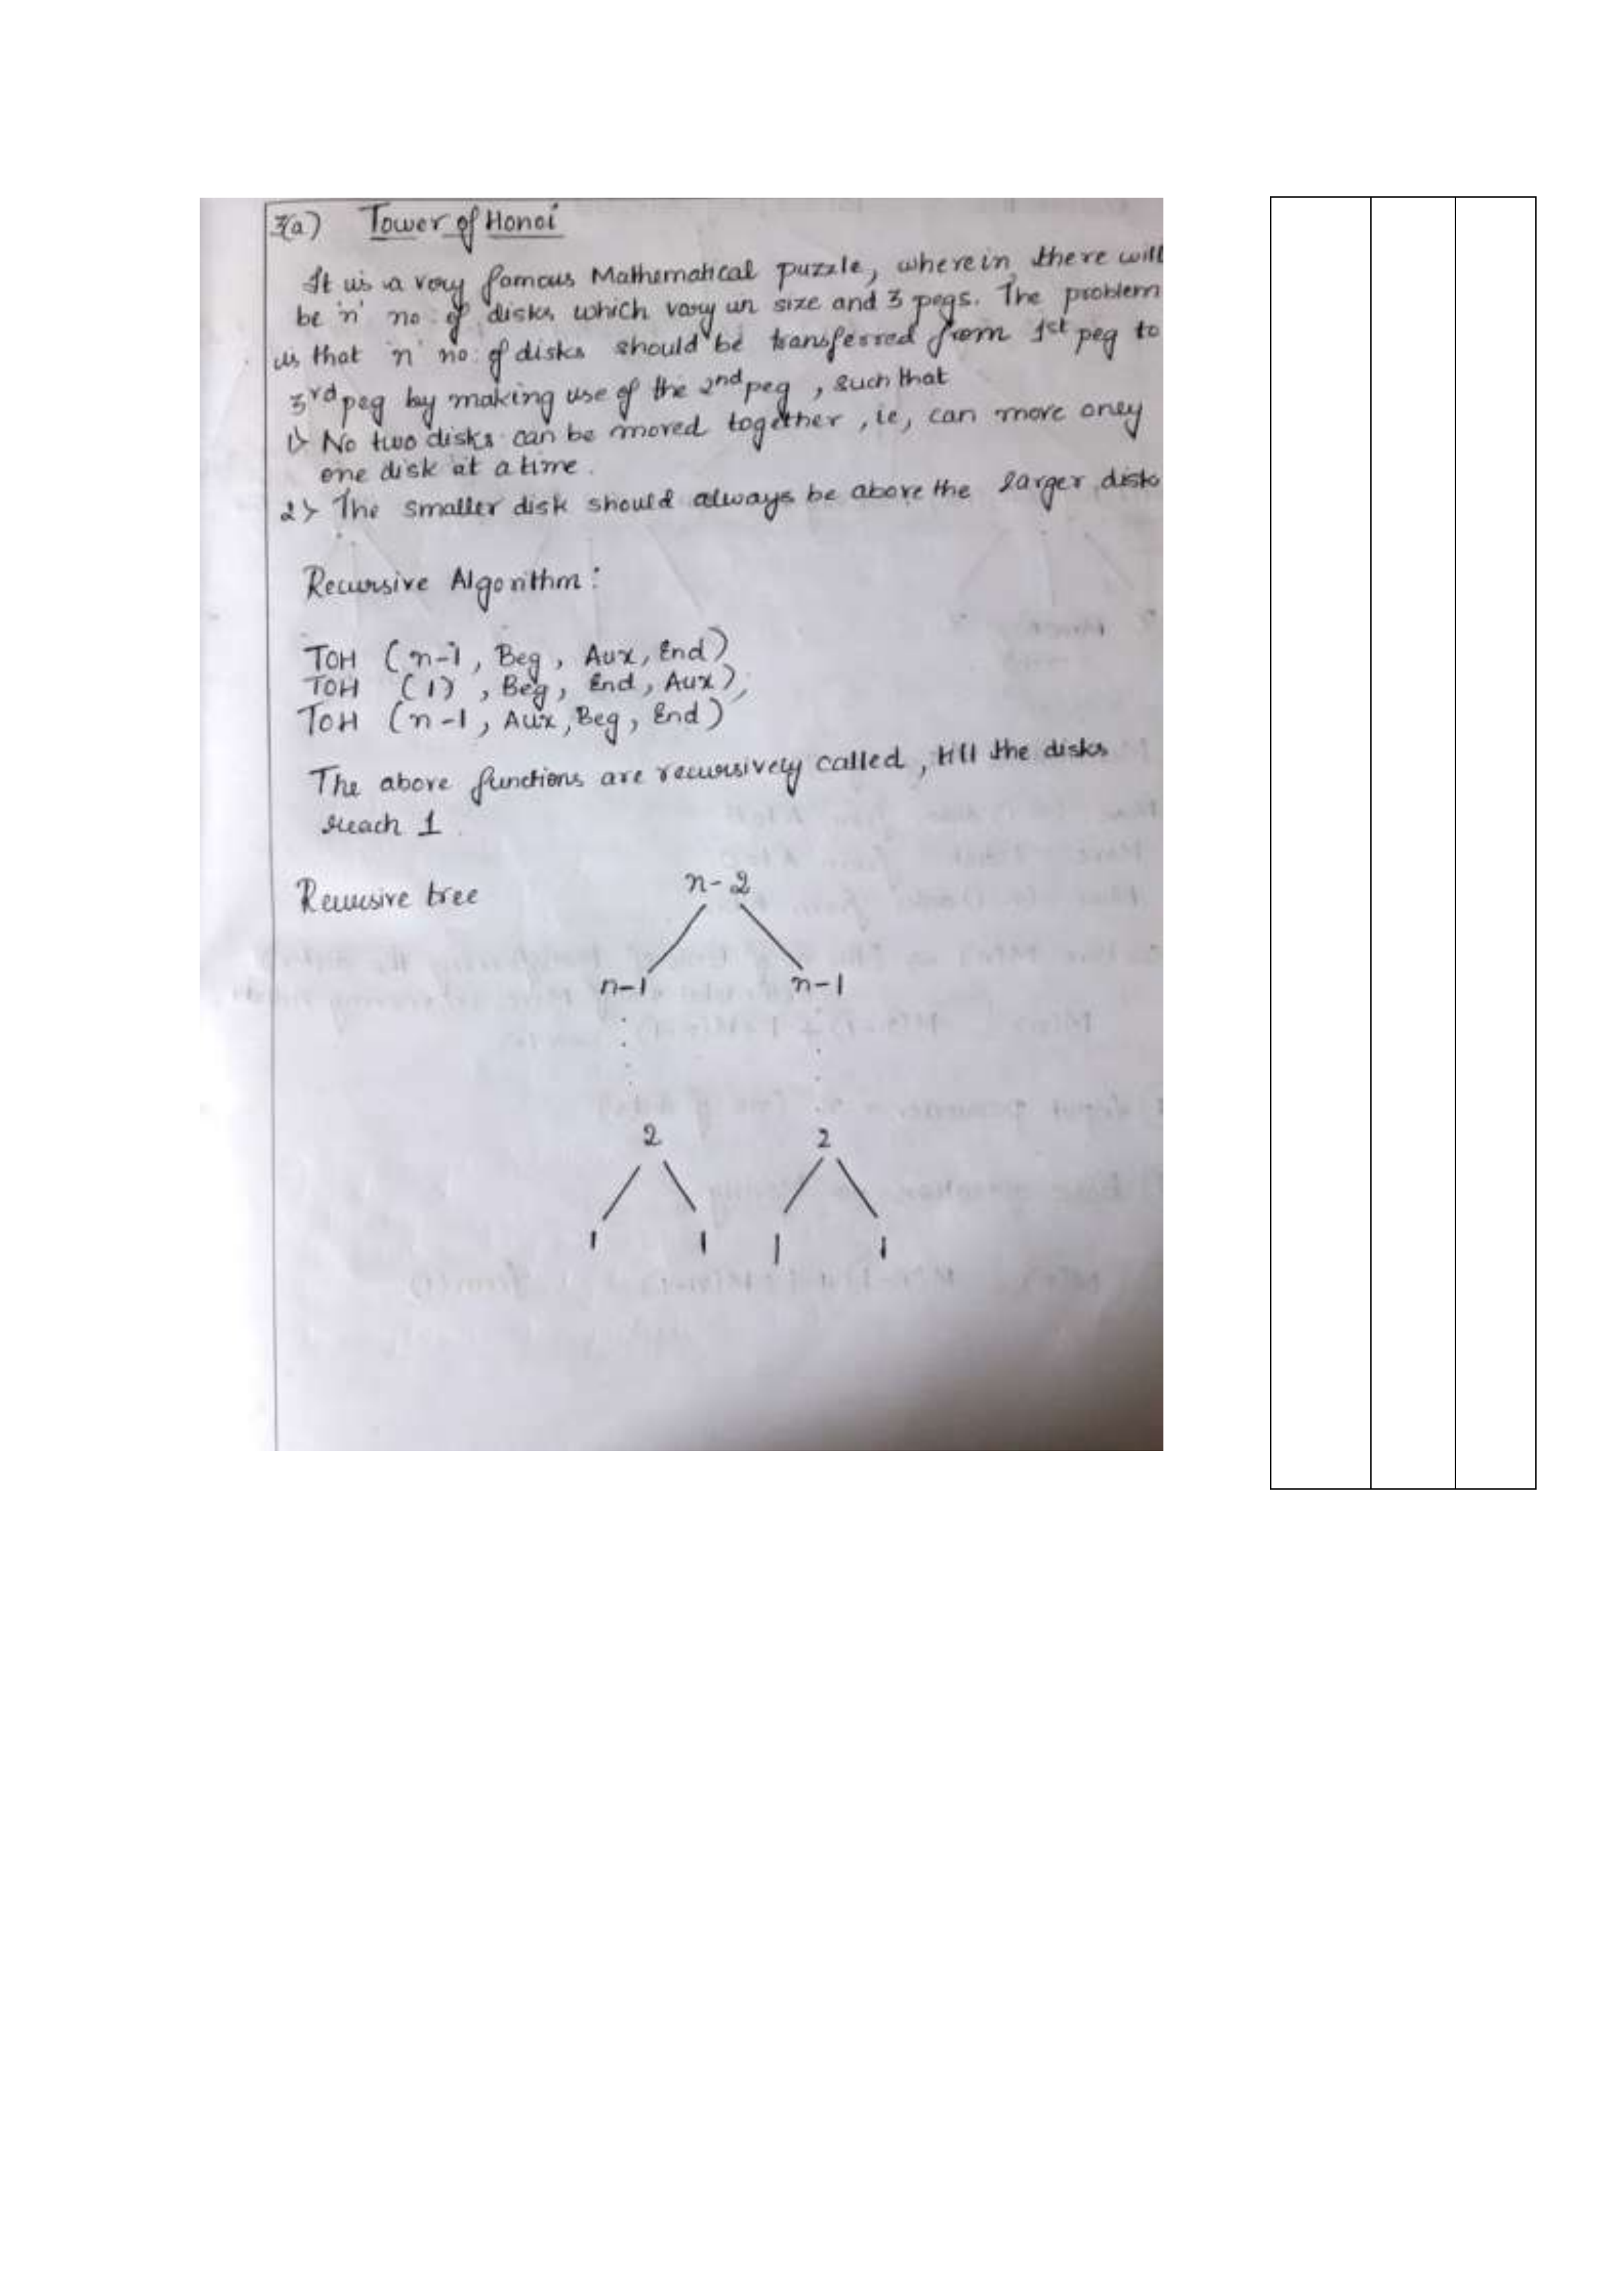 3(a) Tower of Honoi
It is a very famous Mathematical puzzle, wherein there will
be 'n' no. of disks which vary in size and 3 pegs. The problem
is that 'n' no. of disks should be transferred from 1st peg to
3rd peg by making use of the 2nd peg, such that
1> No two disks can be moved together, ie, can move only
one disk at a time.
2> The smaller disk should always be above the larger disk
Recursive Algorithm:
TOH (n-1, Beg, Aux, End)
TOH (1), Beg, End, Aux),
TOH (n-1, Aux, Beg, End)
The above functions are recursively called, till the disks
reach 1
Recursive tree
n-2
n-1 n-1
2 2
1 1 1 1